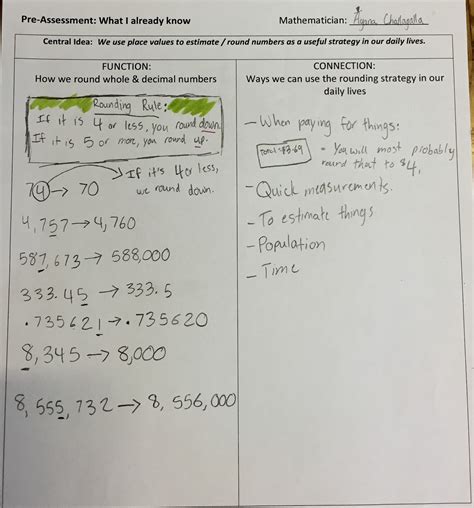 Pre-Assessment: What I already know
Mathematician: Agana Challagalla
Central Idea: We use place values to estimate / round numbers as a useful strategy in our daily lives.
FUNCTION:
How we round whole & decimal numbers
Rounding Rule:
If it is 4 or less, you round down.
If it is 5 or more, you round up.
If it's 4 or less,
we round down.
74 → 70
4,757 → 4,760
587,673 → 588,000
333.45 → 333.5
.735621 → .735620
8,345 → 8,000
8,555,732 → 8,556,000
CONNECTION:
Ways we can use the rounding strategy in our
daily lives
- When paying for things:
Total: $3.69 = You will most probably
round that to $4.
- Quick measurements.
- To estimate things
- Population
- Time